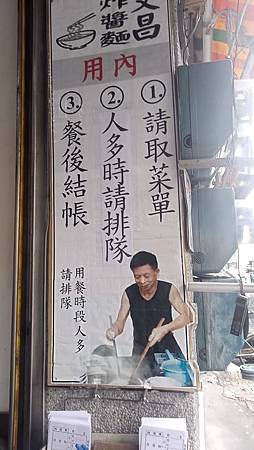 文昌
炸醬麵
內用
1.請取菜單
2.人多時請排隊
3.餐後結帳
用餐時段人多
請排隊